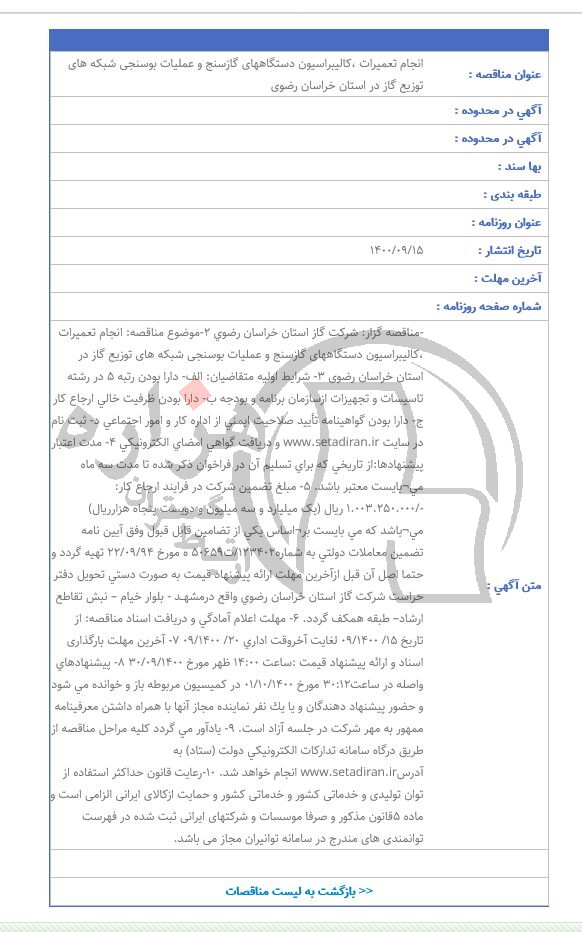 عنوان مناقصه :
انجام تعمیرات ،کالیبراسیون دستگاههای گازسنج و عملیات بوسنجی شبکه های
توزیع گاز در استان خراسان رضوی
آگهي در محدوده :
آگهي در محدوده :
بها سند :
طبقه بندی :
عنوان روزنامه :
تاریخ انتشار :
۱۴۰۰/۰۹/۱۵
آخرین مهلت :
شماره صفحه روزنامه :
متن آگهي :
-مناقصه گزار: شرکت گاز استان خراسان رضوي ۲-موضوع مناقصه: انجام تعمیرات
،کالیبراسیون دستگاههای گازسنج و عملیات بوسنجی شبکه های توزیع گاز در
استان خراسان رضوی ۳- شرایط اولیه متقاضیان: الف- دارا بودن رتبه ۵ در رشته
تاسیسات و تجهیزات ازسازمان برنامه و بودجه ب- دارا بودن ظرفیت خالي ارجاع کار
ج- دارا بودن گواهینامه تأیید صلاحیت ایمني از اداره کار و امور اجتماعي د- ثبت نام
در سایت www.setadiran.ir و دریافت گواهي امضاي الکترونیکي ۴- مدت اعتبار
پیشنهادها:از تاریخي که براي تسلیم آن در فراخوان ذکر شده تا مدت سه ماه
مي¬بایست معتبر باشد. ۵- مبلغ تضمین شرکت در فرایند ارجاع کار:
/-۱.۰۰۳.۲۵۰.۰۰۰ ریال (یک میلیارد و سه میلیون و دویست پنجاه هزارریال)
مي¬باشد که مي بایست بر¬اساس یکي از تضامین قابل قبول وفق آیین نامه
تضمین معاملات دولتي به شماره۱۲۳۴۰۲/ت۵۰۶۵۹ ه مورخ ۲۲/۰۹/۹۴ تهیه گردد و
حتما اصل آن قبل ازآخرین مهلت ارائه پیشنهاد قیمت به صورت دستي تحویل دفتر
حراست شرکت گاز استان خراسان رضوي واقع درمشهد - بلوار خیام – نبش تقاطع
ارشاد– طبقه همکف گردد. ۶- مهلت اعلام آمادگي و دریافت اسناد مناقصه: از
تاریخ ۱۵/ ۰۹/۱۴۰۰ لغایت آخروقت اداري ۲۰/ ۰۹/۱۴۰۰ ۷- آخرین مهلت بارگذاری
اسناد و ارائه پیشنهاد قیمت :ساعت ۱۴:۰۰ ظهر مورخ ۳۰/۰۹/۱۴۰۰ ۸- پیشنهادهاي
واصله در ساعت۳۰:۱۲ مورخ ۰۱/۱۰/۱۴۰۰ در کمیسیون مربوطه باز و خوانده مي شود
و حضور پیشنهاد دهندگان و یا یك نفر نماینده مجاز آنها با همراه داشتن معرفینامه
ممهور به مهر شرکت در جلسه آزاد است. ۹- یادآور مي گردد کلیه مراحل مناقصه از
طریق درگاه سامانه تدارکات الکترونیکي دولت (ستاد) به
آدرسwww.setadiran.ir انجام خواهد شد. ۱۰-رعایت قانون حداکثر استفاده از
توان تولیدی و خدماتی کشور و خدماتی کشور و حمایت ازکالای ایرانی الزامی است و
ماده ۵قانون مذکور و صرفا موسسات و شرکتهای ایرانی ثبت شده در فهرست
توانمندی های مندرج در سامانه توانیران مجاز می باشد.
<< بازگشت به لیست مناقصات